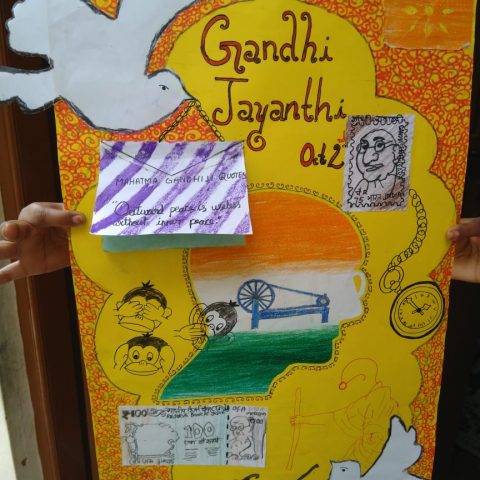 Gandhi
Jayanthi
Oct 2
MAHATMA GANDHIJI QUOTES
"Outward peace is useless
without inner peace."
100